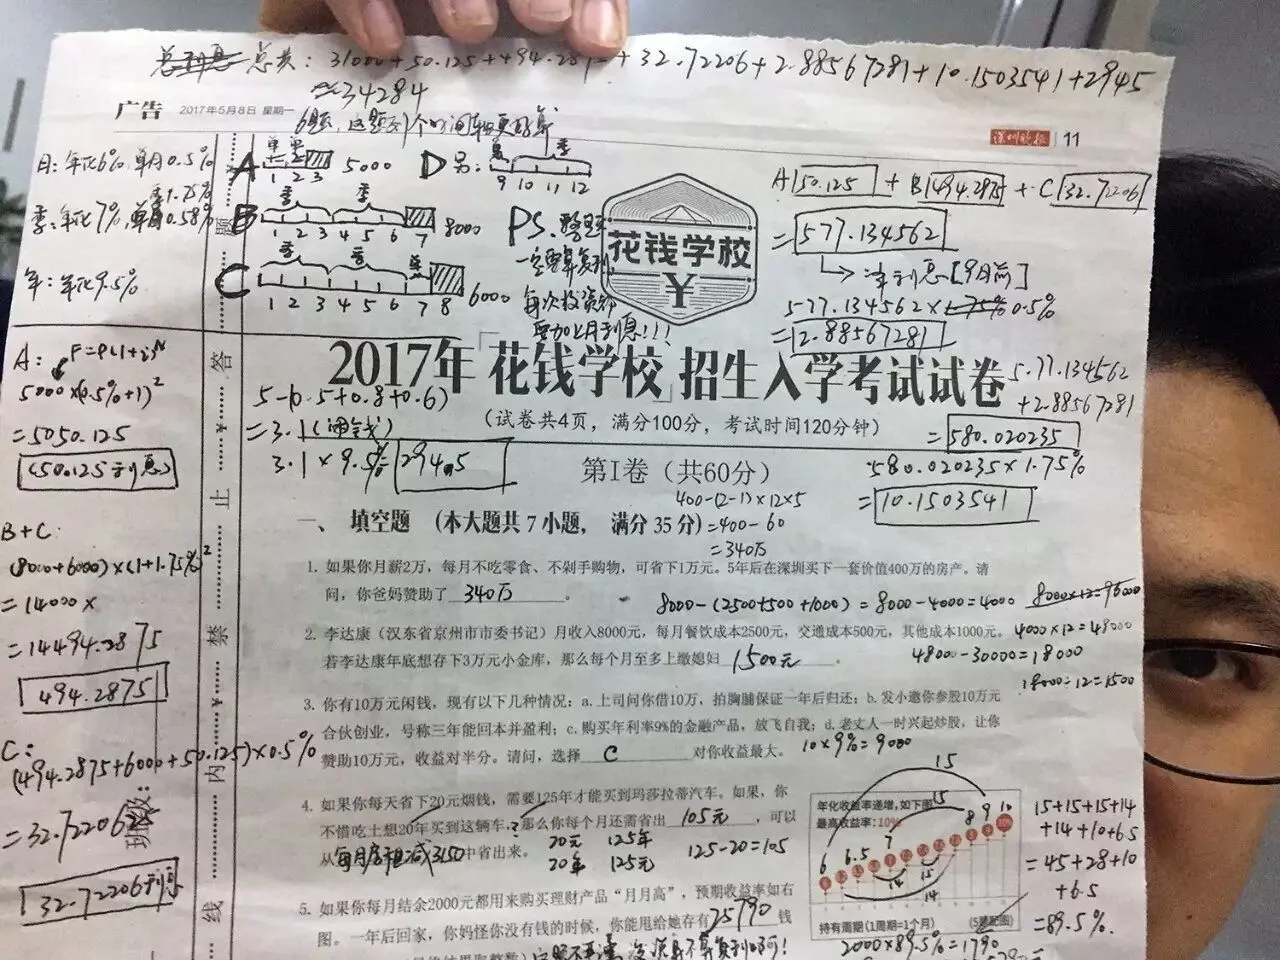 总共：31000+50.125+494.2875+32.72206+2.88567281+10.1503541+2945
≈34284
广告 2017年5月8日 星期一
深圳晚报 11
月：年化6%，单月0.5%
季1.75%
季：年化7%，单月0.58%
年：年化9.5%
A 单 单 5000
1 2 3
B 季 季 8000
1 2 3 4 5 6 7
C 季 季 单 6000
1 2 3 4 5 6 7 8
D 季
9 10 11 12
PS.整题
一定要算复利
每次投资都
要加上月利息!!!
花钱学校
¥
A 50.125 + B 494.2875 + C 32.72206
=577.134562
577.134562× 0.5%
=2.88567281
577.134562
+2.88567281
=580.020235
580.020235×1.75%
=10.1503541
A: F=P(1+i)^N
5000×(0.5%+1)²
=5050.125
(50.125利息)
B+C:
(8000+6000)×(1+1.75%)²
=14000×
=14494.2875
494.2875
C:
(494.2875+6000+50.125)×0.5%
=32.72206
32.72206利息
答
¥
止
禁
¥
内
线
2017年「花钱学校」招生入学考试试卷
（试卷共4页，满分100分，考试时间120分钟）
5-(0.5+0.8+0.6)
=3.1(闲钱)
3.1×9.5% 294.5
第I卷（共60分）
400-(2-1)×12×5
=400-60
=340万
一、填空题 （本大题共7小题， 满分35分）
1. 如果你月薪2万，每月不吃零食、不剁手购物，可省下1万元。5年后在深圳买下一套价值400万的房产。请
问，你爸妈赞助了 340万 。
8000-(2500+500+1000)=8000-4000=4000
2. 李达康（汉东省京州市市委书记）月收入8000元，每月餐饮成本2500元，交通成本500元，其他成本1000元。
若李达康年底想存下3万元小金库，那么每个月至多上缴媳妇 1500元 。
8000×12=96000
4000×12=48000
48000-30000=18000
18000÷12=1500
3. 你有10万元闲钱，现有以下几种情况：a.上司问你借10万，拍胸脯保证一年后归还；b.发小邀你参股10万元
合伙创业，号称三年能回本并盈利；c.购买年利率9%的金融产品，放飞自我；d.老丈人一时兴起炒股，让你
赞助10万元，收益对半分。请问，选择 C 对你收益最大。 10×9%=9000
4. 如果你每天省下20元烟钱，需要125年才能买到玛莎拉蒂汽车。如果，你
不惜吃土想20年买到这辆车，那么你每个月还需省出 105元 ，可以
从 每月房租减3150 中省出来。
20元 125年
20年 125元
125-20=105
5. 如果你每月结余2000元都用来购买理财产品“月月高”，预期收益率如右
图。一年后回家，你妈怪你没有钱的时候，你能甩给她存有 25790 钱
年化收益率递增，如下图
最高收益率：10%
6 6.5 7 8 9 10
15
15
15
14
14
持有周期（1周期=1个月） （5题配图）
15+15+15+14
+14+10+6.5
=45+28+10
+6.5
=89.5%
2000×89.5%=1790